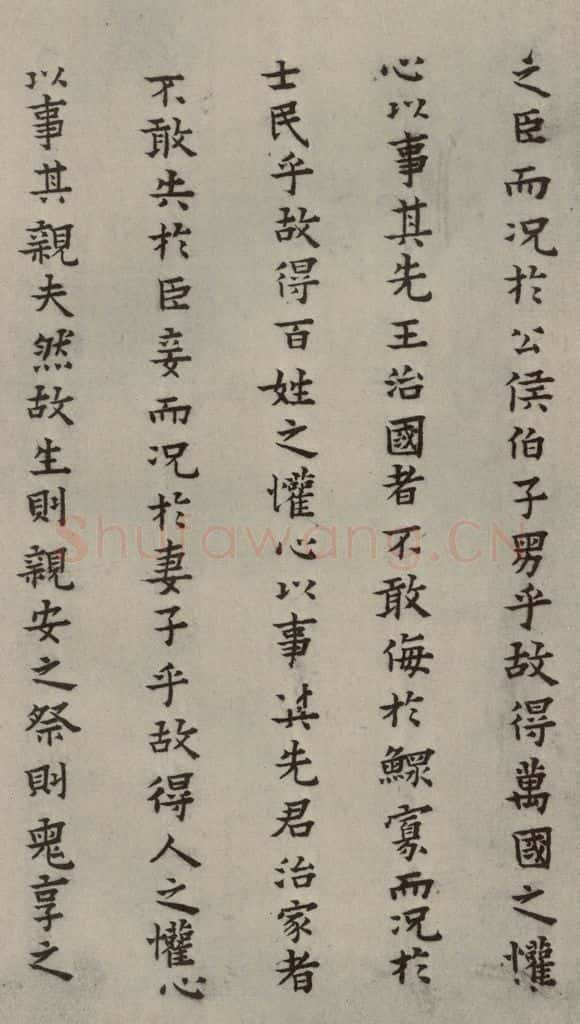 之臣而況於公侯伯子男乎故得萬國之懽
心以事其先王治國者不敢侮於鰥寡而況於
士民乎故得百姓之懽心以事其先君治家者
不敢失於臣妾而況於妻子乎故得人之懽心
以事其親夫然故生則親安之祭則鬼享之
Shufawang.CN